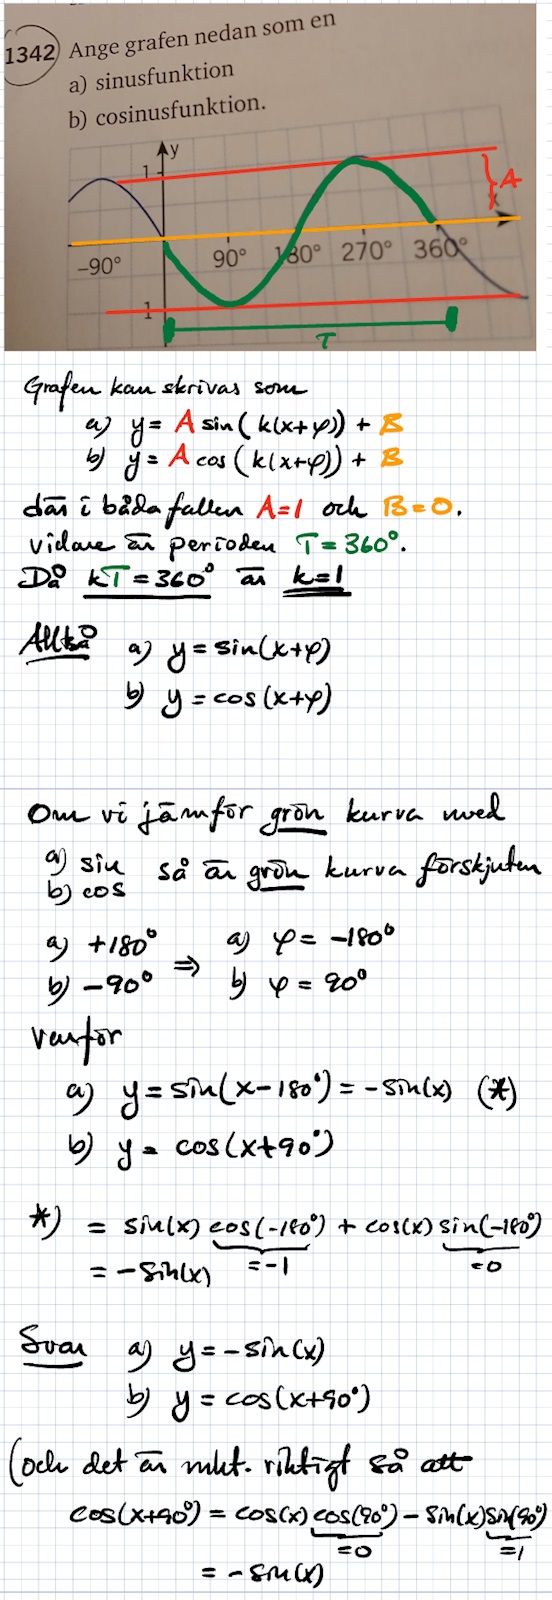 1342 Ange grafen nedan som en
a) sinusfunktion
b) cosinusfunktion.
y
1
A
x
-90° 90° 180° 270° 360°
1
T
Grafen kan skrivas som
a) y = A sin(k(x+φ)) + B
b) y = A cos(k(x+φ)) + B
där i båda fallen A=1 och B=0.
vidare är perioden T=360°.
Då kT=360° är k=1
Alltså a) y = sin(x+φ)
b) y = cos(x+φ)
Om vi jämför grön kurva med
a) sin så är grön kurva förskjuten
b) cos
a) +180° ⇒ a) φ = -180°
b) -90° b) φ = 90°
varför
a) y = sin(x-180°) = -sin(x) (*)
b) y = cos(x+90°)
*) = sin(x) cos(-180°) + cos(x) sin(-180°)
= -sin(x) =-1 =0
Svar a) y = -sin(x)
b) y = cos(x+90°)
(och det är mkt. riktigt så att
cos(x+90°) = cos(x) cos(90°) - sin(x) sin(90°)
=0 =1
= -sin(x)